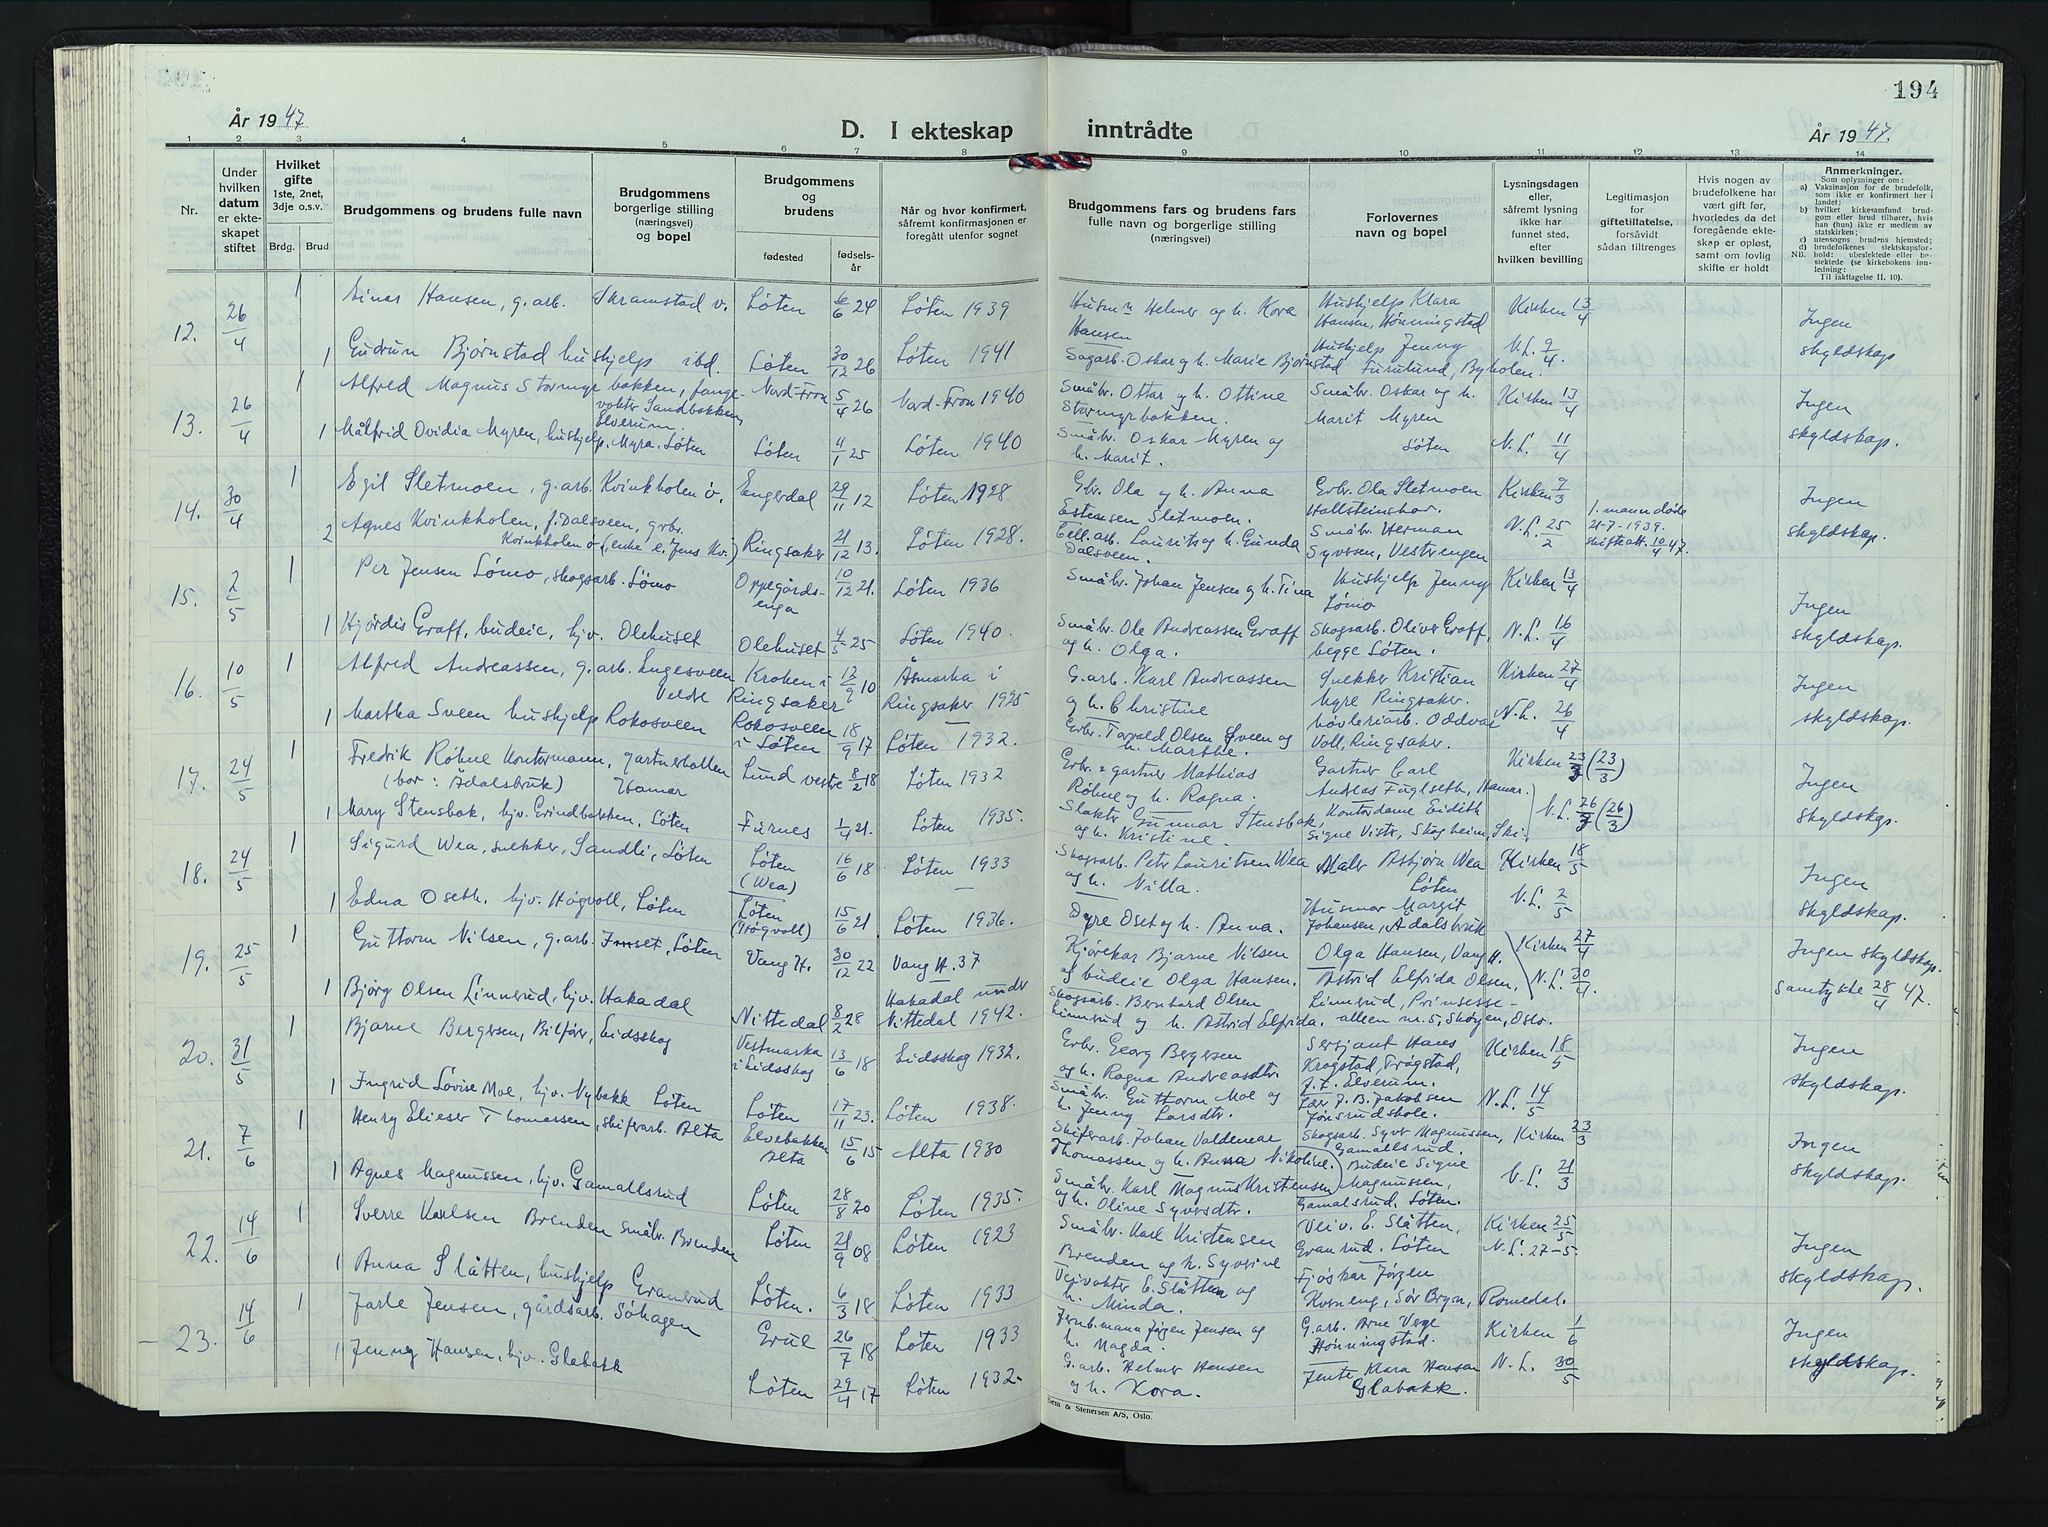 194
År 1947
D. I ekteskap inntrådte
År 1947.
1 2 3 4 5 6 7 8 9 10 11 12 13 14
Nr.
Under hvilken datum er ekteskapet stiftet
Hvilket gifte
1ste, 2net, 3dje o.s.v.
Brdg. Brud
Brudgommens og brudens fulle navn
Brudgommens borgerlige stilling (næringsvei) og bopel
Brudgommens og brudens
fødested
fødselsår
Når og hvor konfirmert, såfremt konfirmasjonen er foregått utenfor sognet
Brudgommens fars og brudens fars fulle navn og borgerlige stilling (næringsvei)
Forlovernes navn og bopel
Lysningsdagen eller, såfremt lysning ikke har funnet sted, efter hvilken bevilling
Legitimasjon for giftetillatelse, forsåvidt sådan tiltrenges
Hvis nogen av brudefolkene har vært gift før, hvorledes da det foregående ekteskap er opløst, samt om lovlig skifte er holdt
Anmerkninger.
Som oplysninger om:
a) Vaksinasjon for de brudefolk, som ikke er konfirmert her i landet;
b) hvilket kirkesamfund brudgom eller brud tilhører, hvis han (hun) ikke er medlem av statskirken;
c) utensogns brudens hjemsted;
d) brudefolkenes slektskapsforhold: ubeslektede eller beslektede (se kirkebokens innledning:
NB.
Til iakttagelse II. 10).
12. 26/4 1 Einar Hansen, g.arb. Skramstad v. Løten 6/6 24 Løten 1939 Husm Helmer og h. Kora Hansen Hushjelp Klara Hansen, Hønningstad Kirken 13/4 Ingen skyldskap
1 Gudrun Bjørnstad hushjelp ibd. Løten 30/12 26 Løten 1941 Sagarb. Oskar og h. Marie Bjørnstad Hushjelp Jenny Furulund, Byholen. N.L. 9/4.
13. 26/4 1 Alfred Magnus Stormyrbakken, fangevokter Sandbakken, Elverum. Nord-Fron 5/4 26 Nord-Fron 1940 Småbr. Ottar og h. Ottine Stormyrbakken. Småbr. Oskar og h. Marit Myren Løten Kirken 13/4 Ingen skyldskap.
1 Målfrid Ovidia Myren, hushjelp. Myra, Løten Løten 4/1 25 Løten 1940 Småbr. Oskar Myren og h. Marit. N.L. 11/4
14. 30/4 1 Egil Sletmoen, g.arb. Kvinkholen ö. Engerdal 29/11 12 Løten 1928 Gbr. Ola og h. Anna Estensen Sletmoen. Gbr. Ola Sletmoen Hallsteinshov. Kirken 9/3 1. mann døde 21-7-1939. skifteatt. 10/4 47. Ingen skyldskap.
2 Agnes Kvinkholen, f. Dalsveen, grbr. Kvinkholen ö (enke e. Jens Kv.) Ringsaker 21/12 13. Løten 1928. Tell.arb. Laurits og h. Gunda Dalsveen. Småbr. Herman Syversen, Vestrengen N.L. 25/2
15. 2/5 1 Per Jensen Lømo, skogsarb. Lømo Oppegårdsenga 10/12 21. Løten 1936 Småbr. Johan Jensen og h. Tina Hushjelp Jenny Lømo Kirken 13/4 Ingen skyldskap.
1 Hjørdis Graff, budeie, hjv. Olehuset Olehuset 4/5 25 Løten 1940. Småbr. Ole Andreassen Graff og h. Olga. Skogsarb. Oliver Graff, begge Løten. N.L. 16/4
16. 10/5 1 Alfred Andreassen, g.arb. Engesveen Veldre Kroken i Ringsaker 13/9 10 Åsmarka i Ringsaker 1925 G.arb. Karl Andreassen og h. Christine Snekker Kristian Myre Ringsaker. Kirken 27/4 Ingen skyldskap.
1 Martha Sveen hushjelp Rokosveen Rokosveen i Løten 18/9 17 Løten 1932. Gbr. Torvald Olsen Sveen og h. Marthe. høvleriarb. Oddvar Voll, Ringsaker. N.L. 26/4
17. 24/5 1 Fredrik Røhne Kontormann, gartnerhallen (bor: Ådalsbruk) Hamar Lund vestre 8/2 18 Løten 1932 Gbr. & gartner Mathias Røhne og h. Ragna. Gartner Carl Andreas Fuglseth, Hamar. Kirken 23/3 (23/3) Ingen skyldskap.
1 Mary Stensbak, hjv. Grindbakken, Løten Furnes 1/4 21. Løten 1935. Slakter Gunnar Stensbak og h. Kristine. Kontordame Eidith Signe Vister, Skogheim, Ski. N.L. 26/3 (26/3)
18. 24/5 1 Sigurd Wea, snekker, Sandli, Løten Løten (Wea) 16/6 18 Løten 1933 Skogsarb. Petr Lauritsen Wea og h. Nilla. Maler Asbjørn Wea Løten Kirken 18/5 Ingen skyldskap.
1 Edna Oseth. hjv. Høgvoll, Løten Løten (Høgvoll) 15/6 21. Løten 1936. Dyre Oset og h. Anna. Husmor Margit Johansen, Ådalsbruk N.L. 2/5
19. 25/5 1 Guttorm Nilsen, g.arb. Imset, Løten Vang H. 30/12 22 Vang H. 37 Kjørekar Bjarne Nilsen og budeie Olga Hansen. Olga Hansen, Vang H. Kirken 27/4 Ingen skyldskap.
1 Bjørg Olsen Linnerud, hjv. Hakadal Nittedal 8/2 28 Hakadal under Nittedal 1942. Skogsarb. Bernhard Olsen Linnerud og h. Astrid Elfrida. Astrid Elfrida Olsen, Linnerud, Prinsessealleen nr. 5, Skøyen, Oslo. N.L. 30/4. Samtykke 28/4 47.
20. 31/5 1 Bjarne Bergersen, Bilfører, Eidsskog Vestmarka i Eidsskog 13/6 18 Eidsskog 1932. Gbr. Georg Bergersen og h. Ragna Andreasdtr. Sersjant Hans Krogstad, Trøgstad, f.t. Elverum. Kirken 18/5 Ingen skyldskap.
1 Ingrid Lovise Moe, hjv. Nybakk Løten Løten 17/11 23. Løten 1938. Småbr. Guttorm Moe og h. Jenny Larsdtr. Lær. J. B. Jakobsen Jønsrudskole. N.L. 14/5
21. 7/6 1 Henry Elieser Thomassen, skiferarb. Alta Elvebakken Alta 15/6 15 Alta 1930 Skiferarb. Johan Valdemar Thomassen og h. Anna Nikoline. Skogsarb. Syver Magnussen, Gamallsrud. Kirken 23/3 Ingen skyldskap.
1 Agnes Magnussen, hjv. Gamallsrud Løten 28/8 20 Løten 1935. Småbr. Karl Magnus Kristensen og h. Oline Syversdtr. Budeie Signe Magnussen, Gamalsrud, Løten. N.L. 21/3
22. 14/6 1 Sverre Karlsen Brenden småbr. Brenden Løten 21/9 08 Løten 1923 Småbr. Karl Kristensen Brenden og h. Syverine Veiv. E. Slåtten, Granrud. Løten Kirken 25/5 Ingen skyldskap.
1 Anna Slåtten, hushjelp Granerud Løten. 6/3 18 Løten 1933 Veivokter E. Slåtten og h. Minda. Fjøskar Jørgen Kverneng, Sør Bryn, Romedal. N.L. 27-5.
23. 14/6 1 Jarle Jensen, gårdsarb. Søhagen Grue 26/7 18 Løten 1933 Jernb.mann Jørgen Jensen og h. Magda. G.arb. Arne Verge Hønningstad. Kirken 1/6 Ingen skyldskap.
1 Jenny Hansen, hjv. Glabakk Løten 29/4 17 Løten 1932. G.arb. Helmer Hansen og h. Kora. Jente Klara Hansen Glabakk. N.L. 30/5
Sem & Stenersen A/S, Oslo.